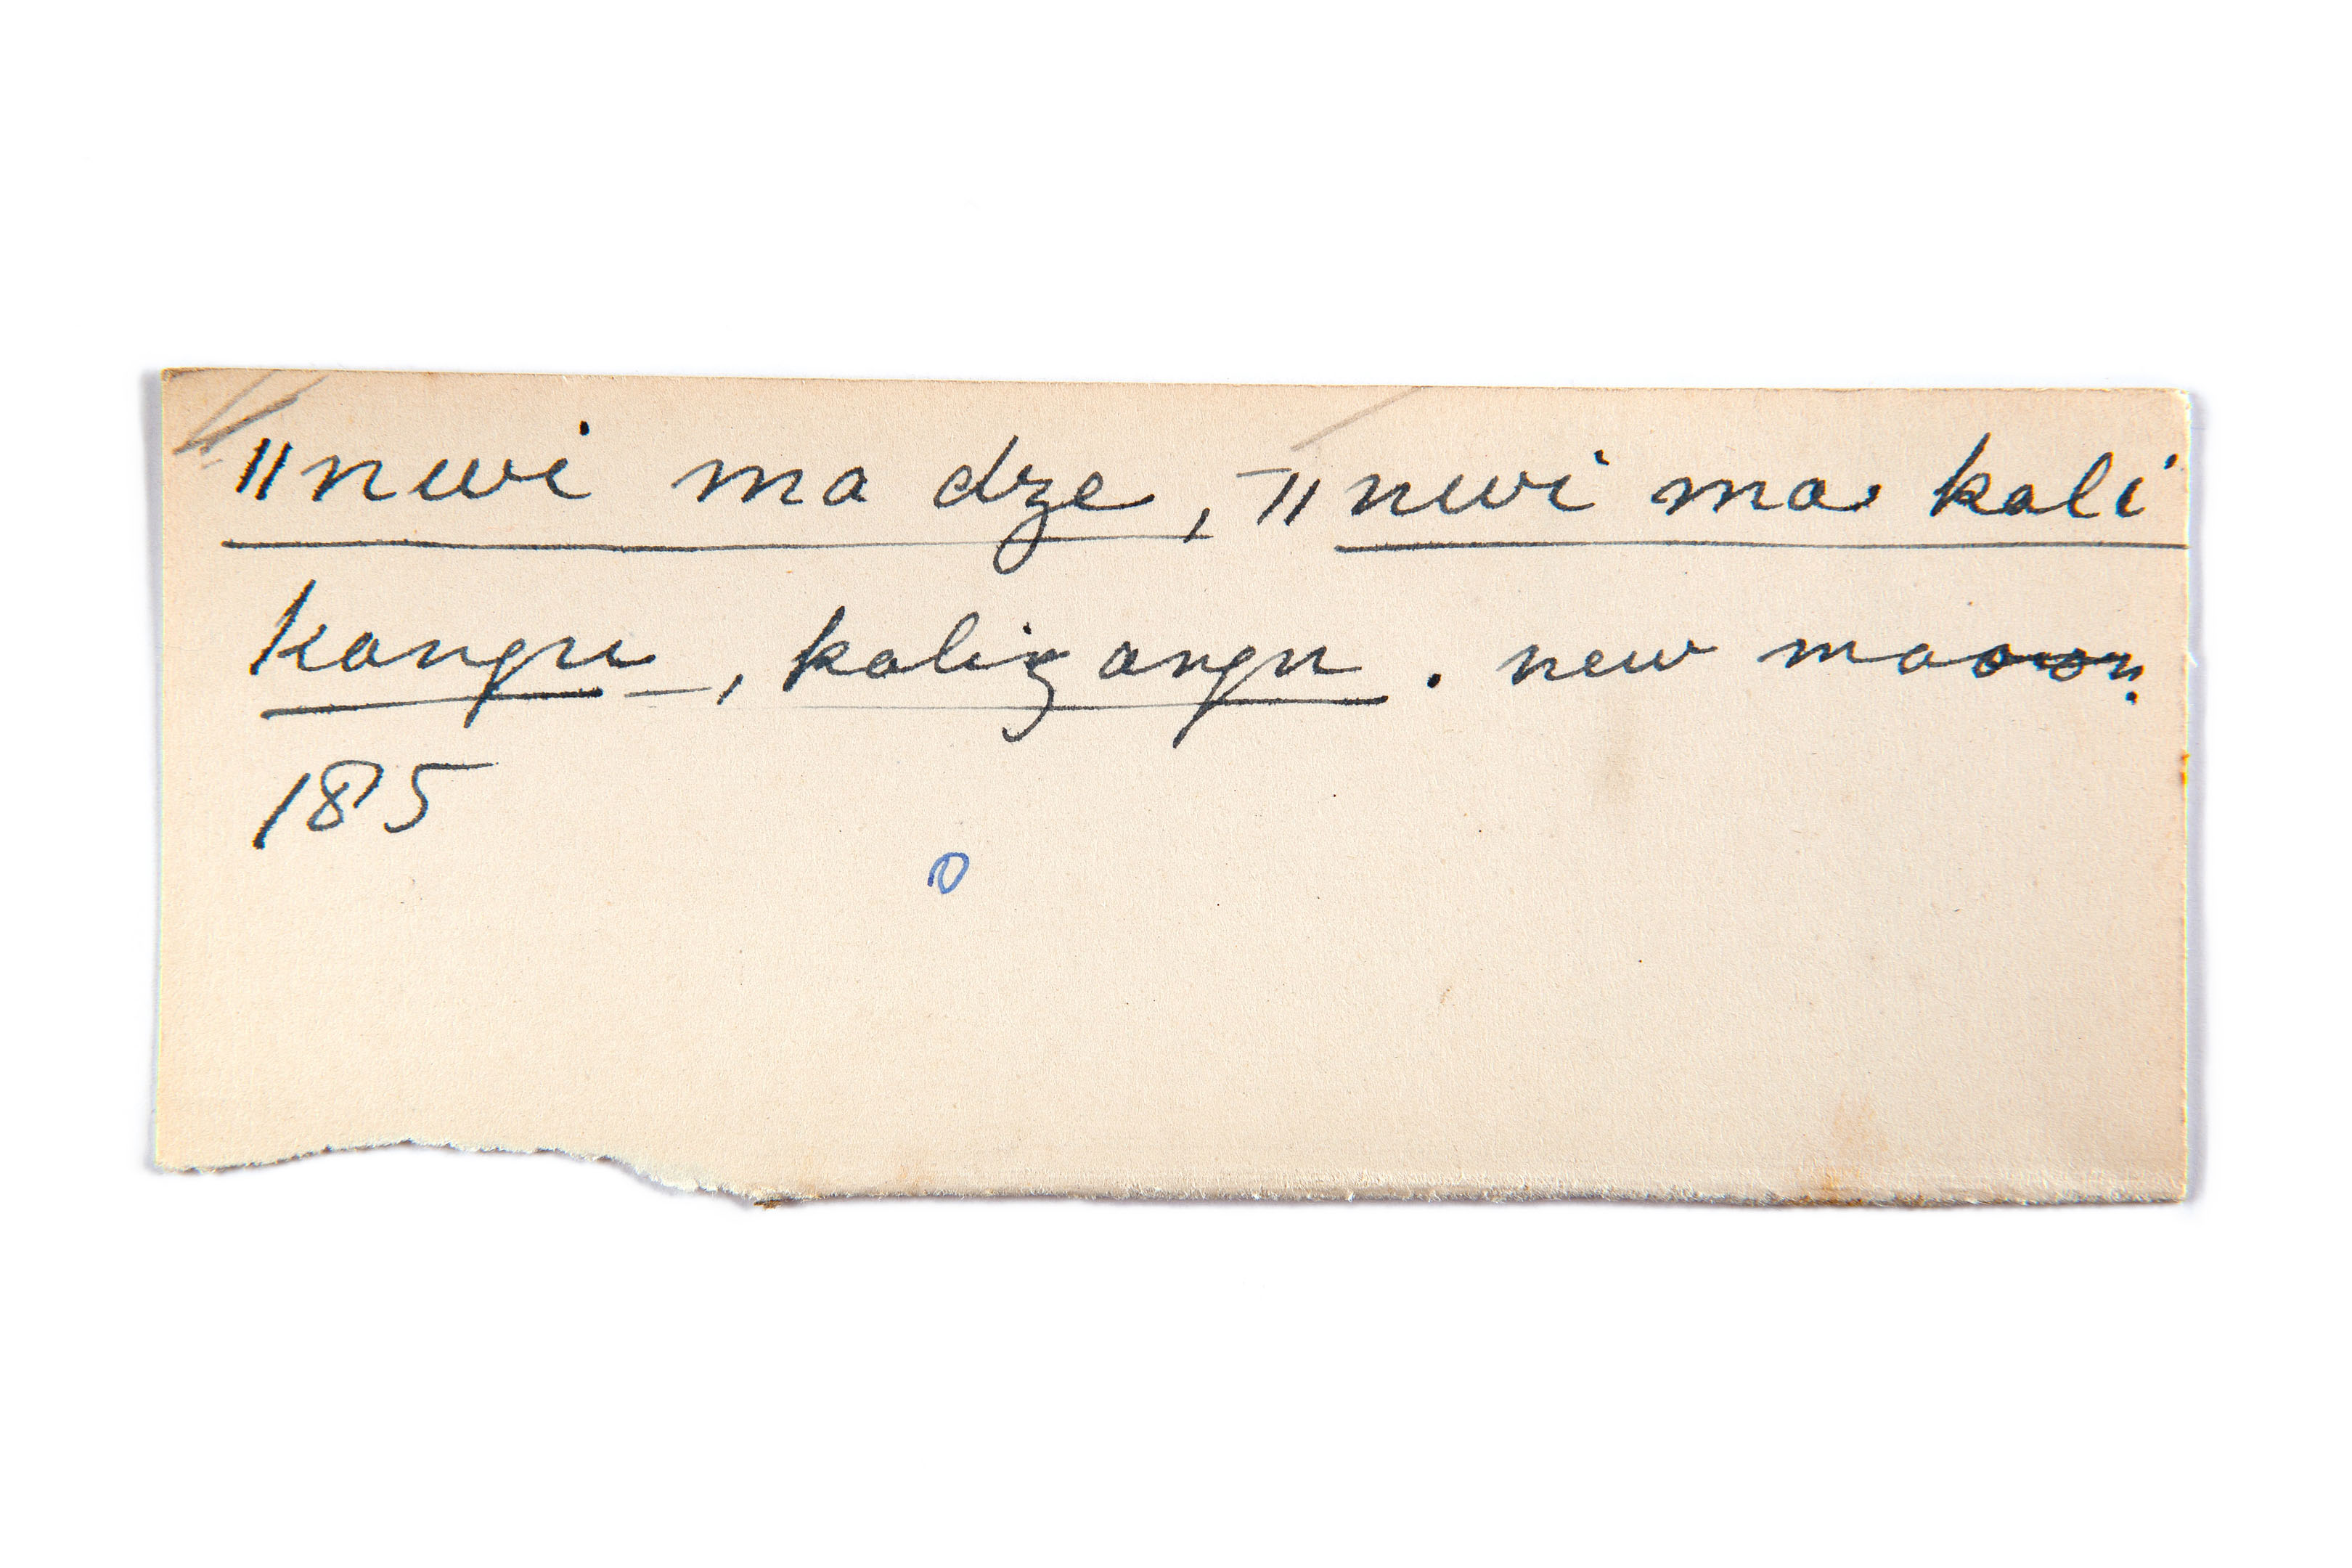 ǁnwi ma dze, ⁻ǁnwi ma kali
kangu, kaligangu. new moon.
185